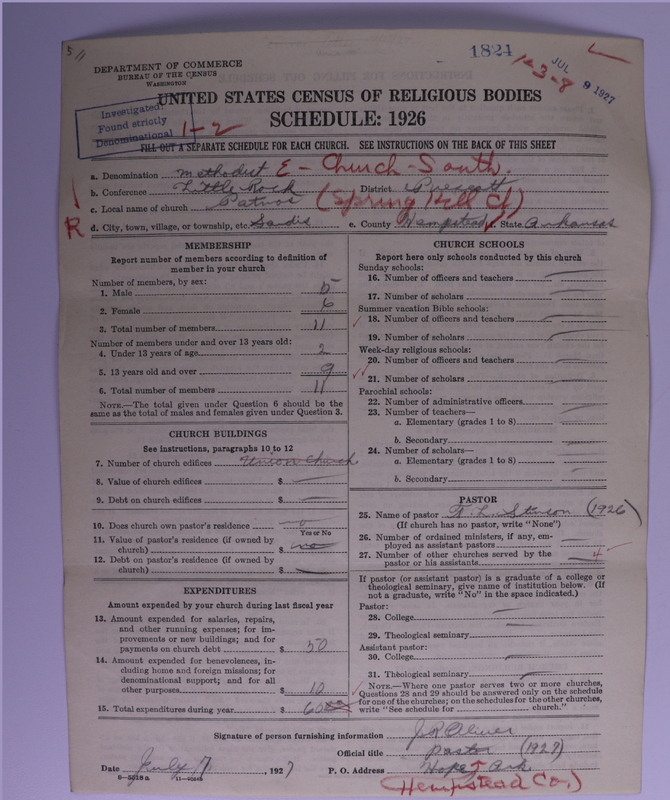 5 //
1821
1-3-8
JUL 9 1927
DEPARTMENT OF COMMERCE
BUREAU OF THE CENSUS
WASHINGTON
Investigated
Found strictly
Denominational
1-2
UNITED STATES CENSUS OF RELIGIOUS BODIES
SCHEDULE: 1926
FILL OUT A SEPARATE SCHEDULE FOR EACH CHURCH. SEE INSTRUCTIONS ON THE BACK OF THIS SHEET
a. Denomination Methodist E - Church - South.
b. Conference Little Rock District Prescott
c. Local name of church Patmos (Spring Hill Ct)
R
d. City, town, village, or township, etc. Sardis e. County Hempstead f. State Arkansas
MEMBERSHIP
Report number of members according to definition of
member in your church
Number of members, by sex:
1. Male 5
2. Female 6
3. Total number of members 11
Number of members under and over 13 years old:
4. Under 13 years of age 2
5. 13 years old and over 9
6. Total number of members 11
NOTE.—The total given under Question 6 should be
same as the total of males and females given under Question 3.
CHURCH BUILDINGS
See instructions, paragraphs 10 to 12
7. Number of church edifices Union Church
8. Value of church edifices $
9. Debt on church edifices $
10. Does church own pastor's residence no
Yes or No
11. Value of pastor's residence (if owned by
church) $ no
12. Debt on pastor's residence (if owned by
church) $
EXPENDITURES
Amount expended by your church during last fiscal year
13. Amount expended for salaries, repairs,
and other running expenses; for im-
provements or new buildings; and for
payments on church debt $ 50
14. Amount expended for benevolences, in-
cluding home and foreign missions; for
denominational support; and for all
other purposes $ 10
15. Total expenditures during year $ 60
CHURCH SCHOOLS
Report here only schools conducted by this church
Sunday schools:
16. Number of officers and teachers
17. Number of scholars
Summer vacation Bible schools:
18. Number of officers and teachers
19. Number of scholars
Week-day religious schools:
20. Number of officers and teachers
21. Number of scholars
Parochial schools:
22. Number of administrative officers
23. Number of teachers—
a. Elementary (grades 1 to 8)
b. Secondary
24. Number of scholars—
a. Elementary (grades 1 to 8)
b. Secondary
PASTOR
25. Name of pastor F. L. Stinson (1926)
(If church has no pastor, write "None")
26. Number of ordained ministers, if any, em-
ployed as assistant pastors
27. Number of other churches served by the
pastor or his assistants 4
If pastor (or assistant pastor) is a graduate of a college or
theological seminary, give name of institution below. (If
not a graduate, write "No" in the space indicated.)
Pastor:
28. College
29. Theological seminary
Assistant pastor:
30. College
31. Theological seminary
NOTE.—Where one pastor serves two or more churches,
Questions 28 and 29 should be answered only on the schedule
for one of the churches; on the schedules for the other churches,
write "See schedule for church."
Signature of person furnishing information J. R. Oliver
Official title Pastor (1927)
Date July 7, 1927 P. O. Address Hope Ark
(Hempstead Co.)